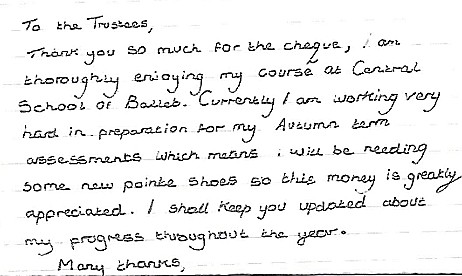 To the Trustees,
Thank you so much for the cheque, i am
thoroughly enjoying my course at Central
School of Ballet. Currently I am working very
hard in preparation for my Autumn term
assessments which means i will be needing
some new pointe shoes so this money is greatly
appreciated. I shall keep you updated about
my progress throughout the year.
Many thanks,